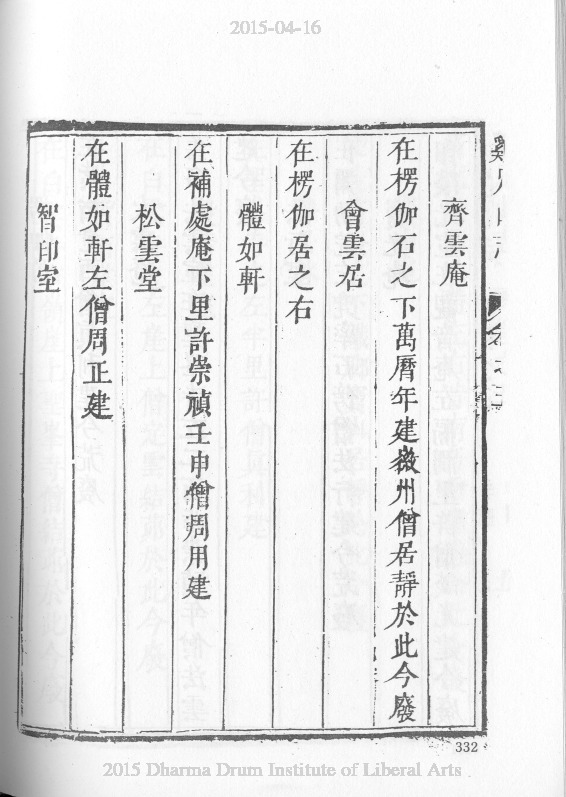 2015-04-16
齊雲庵
在楞伽石之下萬曆年建徽州僧居靜於此今廢
會雲居
在楞伽居之右
體如軒
在補處庵下里許崇禎壬申僧周用建
松雲堂
在體如軒左僧周正建
智印室
332
2015 Dharma Drum Institute of Liberal Arts